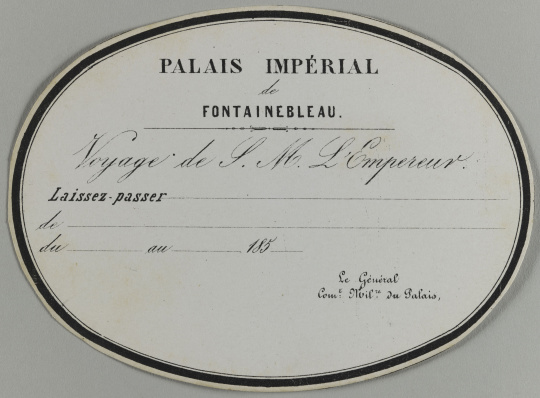 PALAIS IMPÉRIAL
de
FONTAINEBLEAU.
Voyage de S. M. L'Empereur.
Laissez-passer
de
du au 185
Le Général
Comt. Milre. du Palais,